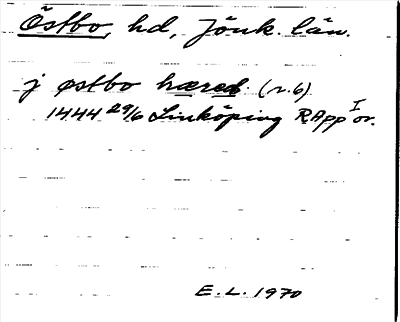 Östbo, hd, Jönk. län.
j østbo hæred. (r.6)
1444 29/6 Linköping RApp I or.
E.L. 1970